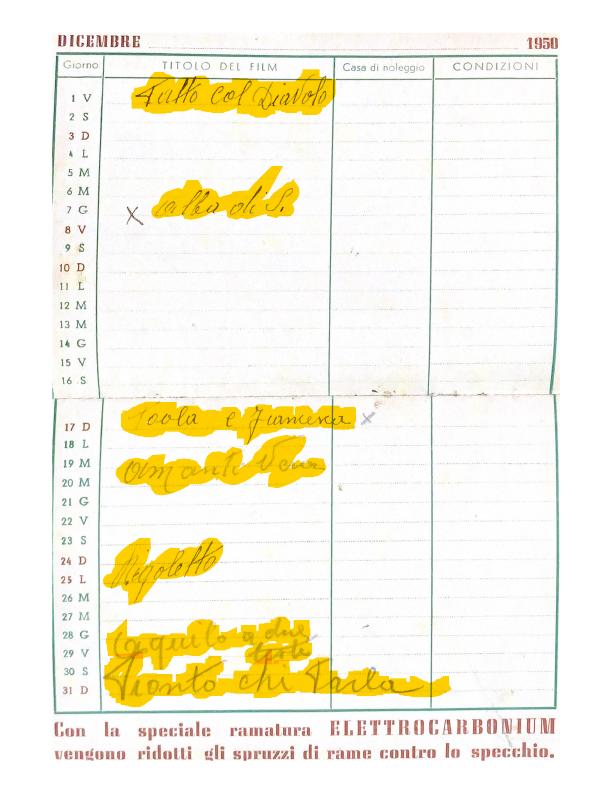 DICEMBRE 1950
Giorno TITOLO DEL FILM Casa di noleggio CONDIZIONI
1 V Patto col Diavolo
2 S
3 D
4 L
5 M
6 M
7 G x alba di S.
8 V
9 S
10 D
11 L
12 M
13 M
14 G
15 V
16 S
17 D Paola e Francesca x
18 L
19 M amanti
20 M
21 G
22 V
23 S
24 D Rigoletto
25 L
26 M
27 M
28 G L'aquila a due
29 V teste
30 S
31 D Pronto chi Parla
Con la speciale ramatura ELETTROCARBONIUM
vengono ridotti gli spruzzi di rame contro lo specchio.